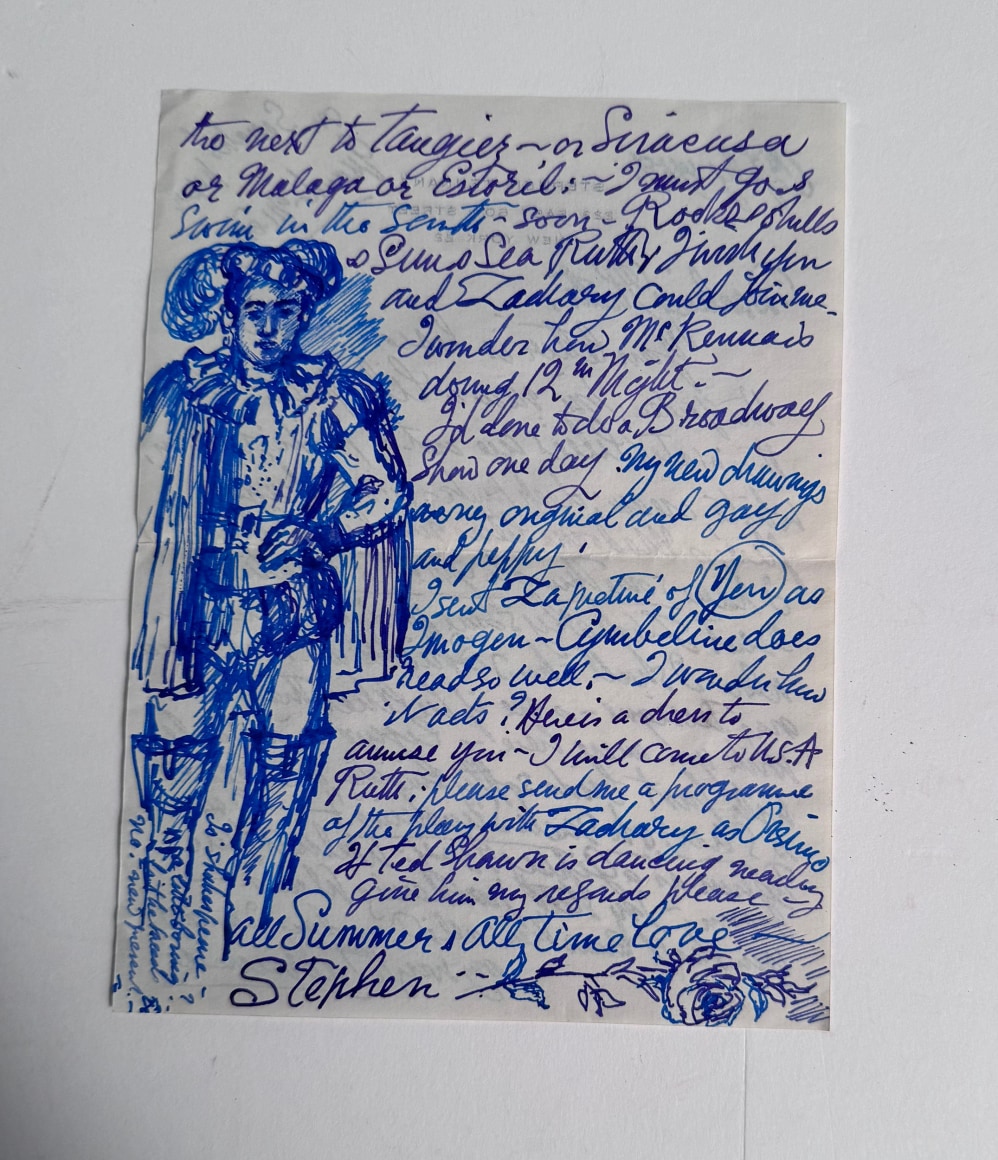 tho next to Tangier ~ or Siracusa
or Malaga or Estoril. ~ I must go &
swim in the South - soon - Rocks & shells
& Sun & Sea Ruth, I wish you
and Zachary could join me -
I wonder how Mc Kenna is
doing 12th Night. ~
I'd love to do a Broadway
Show one day. My new drawings
are very original and gay
and peppy!
I sent Za picture of (You) as
Imogen ~ Cymbeline does
read so well. ~ I wonder how
it acts? Here is a dress to
amuse you ~ I will come to U.S.A
Ruth, please send me a programme
of the play with Zachary as Orsino
If Ted Shawn is dancing nearby
give him my regards please ~
all Summer & All Time Love
Stephen
is Shakespeare ~
boring?
no. never